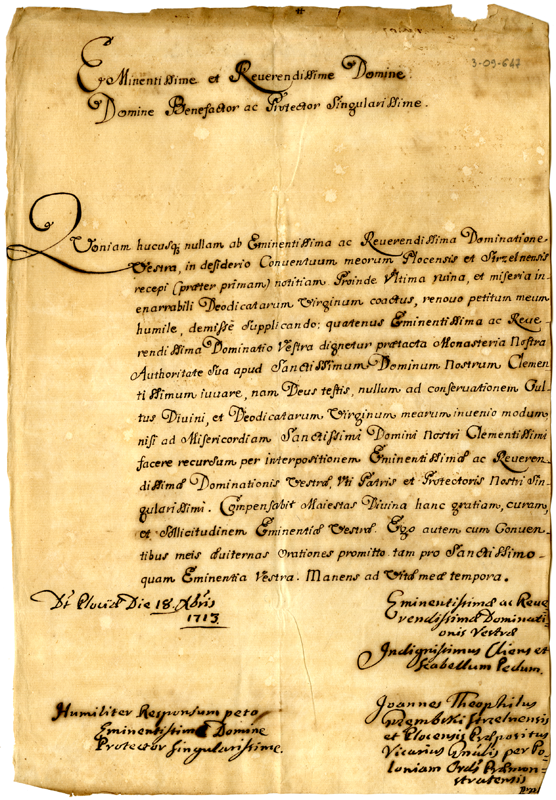 3-09-647
Eminentissime et Reverendissime Domine
Domine Benefactor ac Protector Singularissime.
Quoniam hucusq; nullam ab Eminentissima ac Reverendissima Dominatione
Vestra, in desiderio Conventuum meorum Plocensis et Strzelnensis
recepi (præter primam) notitiam. Proinde Ultima ruina, et miseria in-
enarrabili Deodicatarum Virginum coactus, renovo petitum meum
humile, demisse supplicando: quatenus Eminentissima ac Reve
rendissima Dominatio Vestra dignetur prætacta Monasteria Nostra
Authoritate sua apud Sanctissimum Dominum Nostrum Clemen
tissimum iuvare, nam Deus testis, nullum ad conservationem Cul-
tus Divini, et Deodicatarum Virginum mearum invenio modum
nisi ad Misericordiam Sanctissimi Domini Nostri Clementissimi
facere recursum per interpositionem Eminentissimæ ac Reveren-
dissimæ Dominationis Vestræ, Uti Patris et Protectoris Nostri Sin-
gularissimi. Compensabit Maiestas Divina hanc gratiam, curam,
et Sollicitudinem Eminentiæ Vestræ. Ego autem cum Conven-
tibus meis diuiternas Orationes promitto tam pro Sanctissimo
quam Eminentia Vestra. Manens ad Vitæ meæ tempora.
Dt Plociæ Die 18. Xbris
1713
Eminentissimæ ac Reve
rendissimæ Dominati-
onis Vestræ
Indignissimus Cliens et
Scabellum Pedum.
Humiliter Responsum peto
Eminentissime Domine
Protector Singularissime.
Joannes Theophilus
Strzelnensis
et Plocensis Præpositus
Vicarius Gnalis per Po-
loniam Ords Præmon-
stratensis